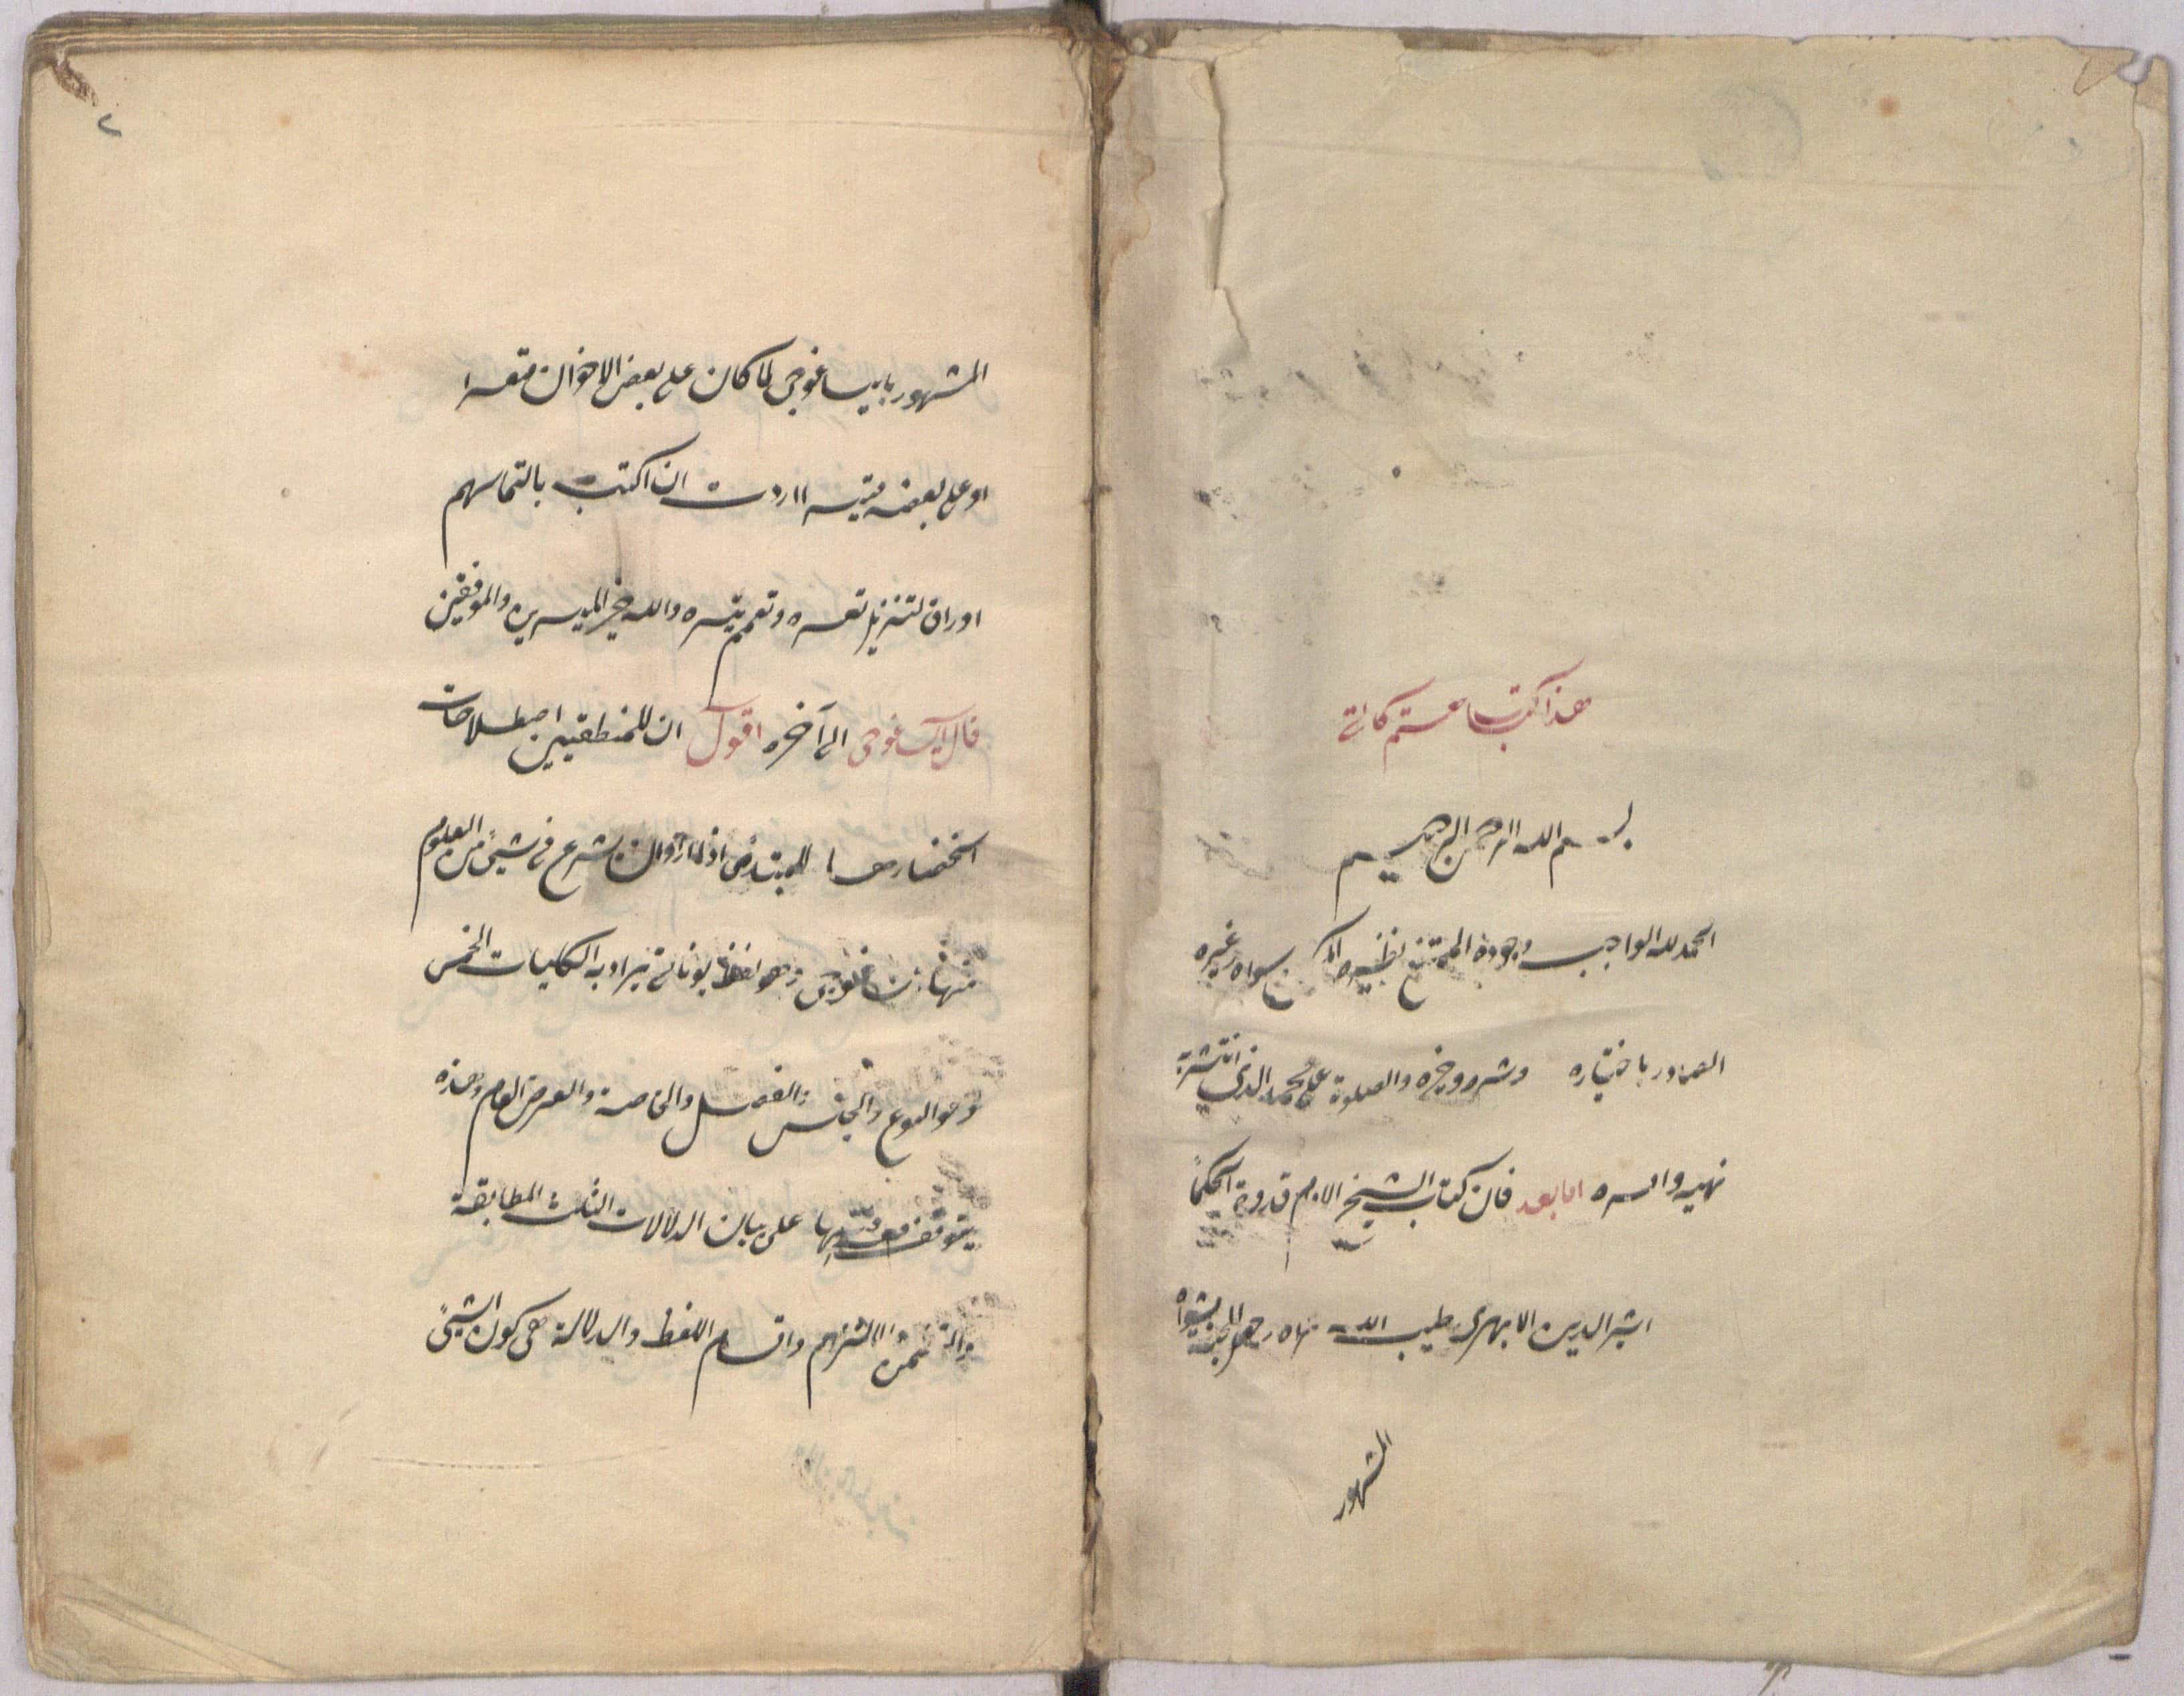 هذا كتاب حسم كاتي
بسم الله الرحمن الرحيم
الحمد لله الواجب وجوده الممتنع نظيره الممكن سواه وغيره
الصادر باختياره وشره وخيره والصلوة على محمد الذي انتشرت
نهيه وامره اما بعد فان كتاب الشيخ الامام قدوة الحكماء
اثير الدين الابهري طيب الله ثراه وجعل الجنة مثواه
المشهور
٢
المشهور بايساغوجي لما كان على بعض الاخوان متعسرا
او على بعضه متيسرا اردت ان اكتب بالتماسهم
اوراق لتنزيل تعسره وتعمم تيسره والله خير الميسرين والموفقين
قال ايساغوجي الى آخره اقول ان للمنطقيين اصطلاحات
استحضارها للمبتدئ اذا اراد ان يشرع في شيئ من العلوم
منها ايساغوجي وهو لفظ يوناني يراد به الكليات الخمس
وهو النوع والجنس والفصل والخاصة والعرض العام وهذه
يتوقف معرفتها على بيان الدلالات الثلث المطابقة
والتضمن والالتزام واقسام اللفظ والدلالة هي كون الشيئ